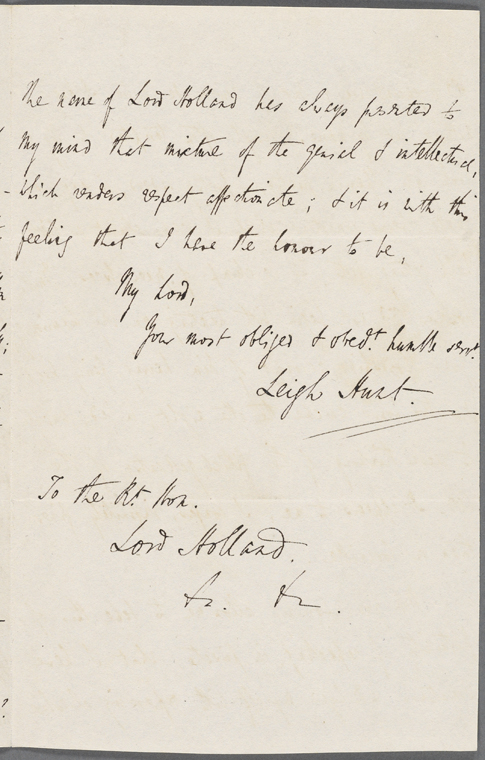 The name of Lord Holland has always presented to
my mind that mixture of the genial & intellectual,
which renders respect affectionate; & it is with this
feeling that I have the honour to be,
My Lord,
Your most obliged & obedt. humble servt.
Leigh Hunt.
To the Rt Hon.
Lord Holland.
&c. &c.